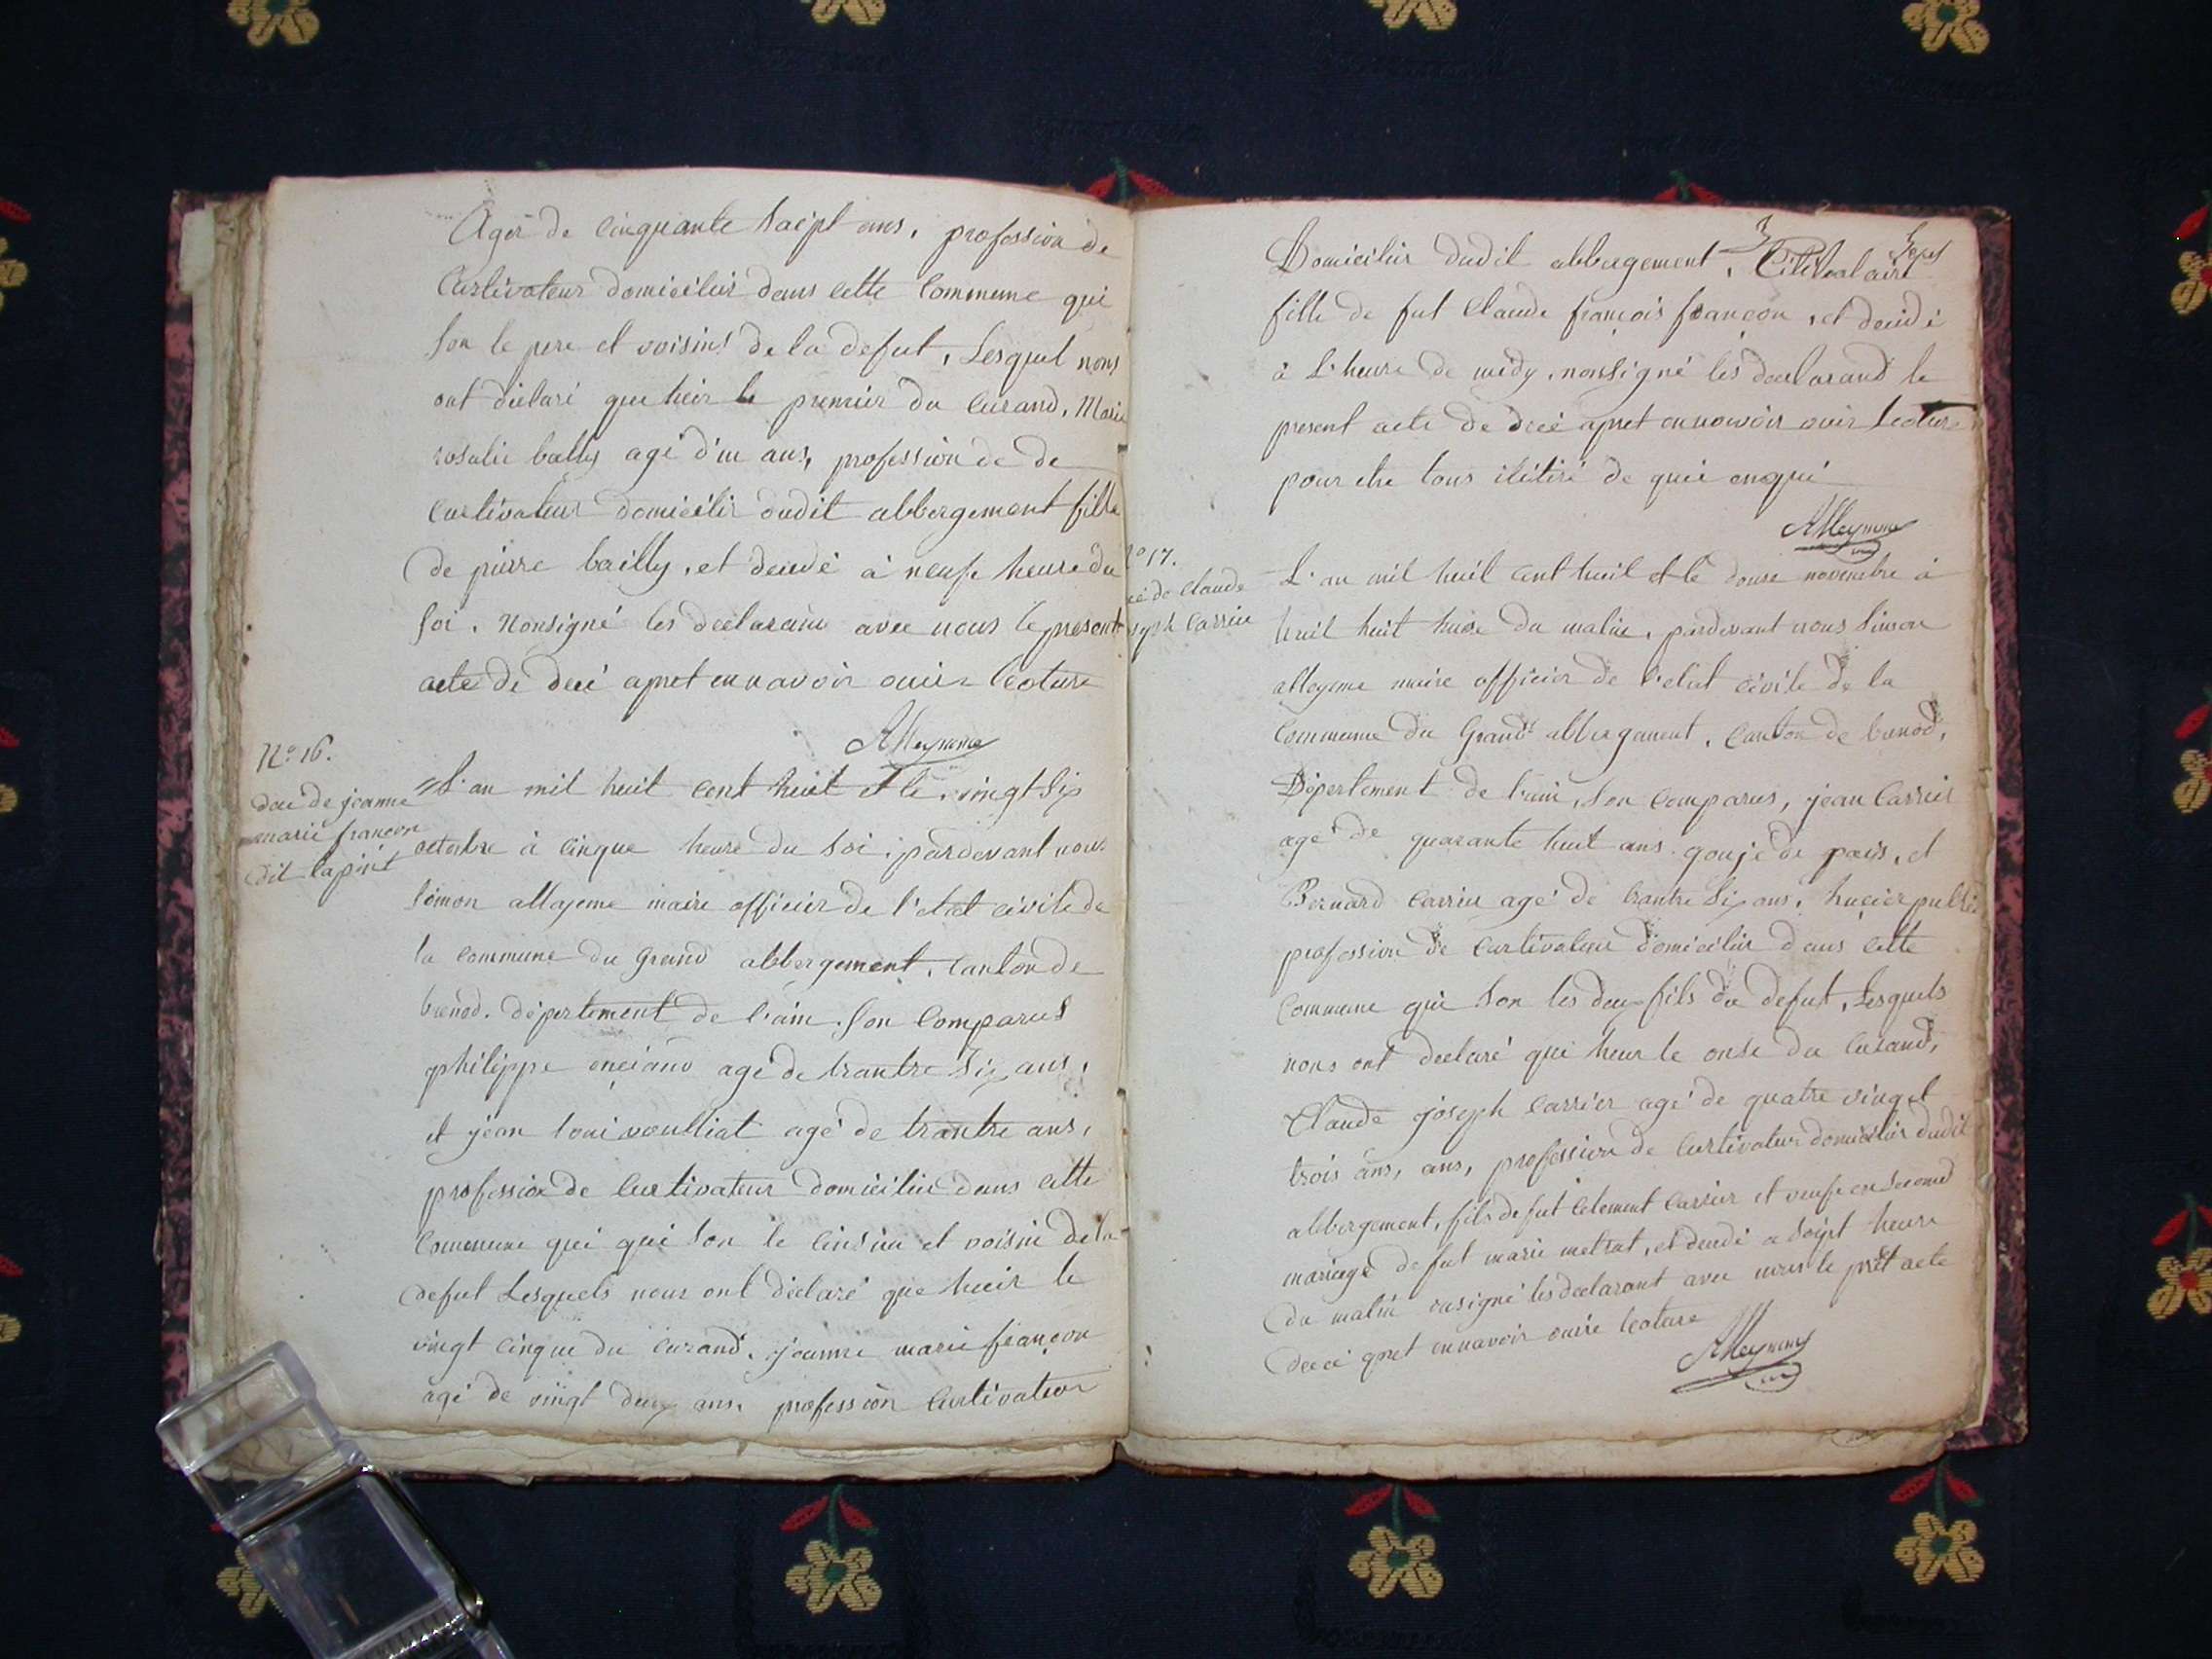 Agér de cinquante saipt ans, profession de
Curtivateur domiciliér dans cette Commune qui
son le pere et voisins de la defut, Lesquel nous
ont diclaré que heir le premier du Curand, Marie
rosalie bailly agé d'un ans, profession de de
curtivateur domicilir dudit abbergement fille
de pierre bailly, et decedé à neufe heure du
soi. Nonsigné les declarant avec nous le present
acte de decé apret ennavoir ouire lecture
Alleyneme
N.o 16.
decé de jeanne
marie françon
dit lapirit
L'an mil huit cent huit et le vingt six
octobre à cinque heure du soi, pardevant nous
simon allayeme maire officier de l'etat civile de
la commune du Grand abbergement, canton de
brenod. département de l'ain. son Comparus
philippe anciand agé de trantre six ans,
et jean loui voulliat agé de trantre ans,
profession de Curtivateur domicilié dans cette
Commune qui qui son le cinsin et voisin de la
defut Lesquels nous ont déclaré que hieir le
vingt cinque du curand. jeanne marie françon
agé de vingt deux ans. profession Curtivateur
3 Sept
Domicilier dudit abbergement,
fille de fut Claude françois françon, et decidé
à L'heure de midy, nonsigné les declarand le
present acte de decé apret ennowoir ouir Lecture
pour etre
Alleyneme
N.o 17.
cé de Claude
oseph Carrier
L'an mil huit cent huit et le douse novembre à
huit huit heure du matin, pardevant nous Simon
alleyeme maire officier de l'etat civile de la
Commune du Grand abbergement, canton de brenod,
Département de l'ain, son Comparus, jean Carrier
agé de quarante huit ans gouje de pais, et
Bernard Carrier agé de trantre six ans, hucier public
profession de curtivateur domicilier dans cette
Commune qui son les deux fils du defut, Lesquels
nous ont declaré qui heur le onse du Curand,
Claude joseph Carrier agé de quatre vingt
trois ans, ans, profession de curtivateur domicilier dudit
abbergement, fils de fut Clement Carrier et veufe en second
mariage de fut marie metrat, et decedé a Saipt heure
du matin ensigné les declarant avec nous le prêt acte
decé apret ennavoir ouire lecture
Alleyneme